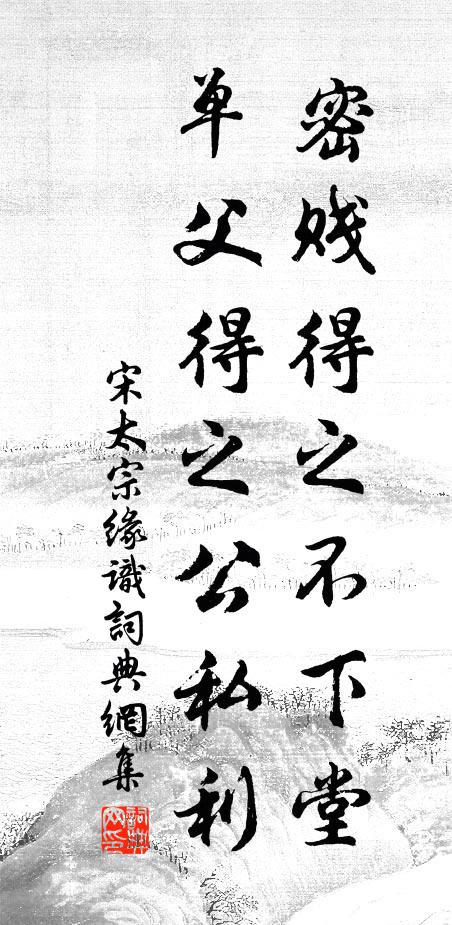 密贱得之不下堂
单父得之公私利
宋太宗缘識詞典網集
詞典網印